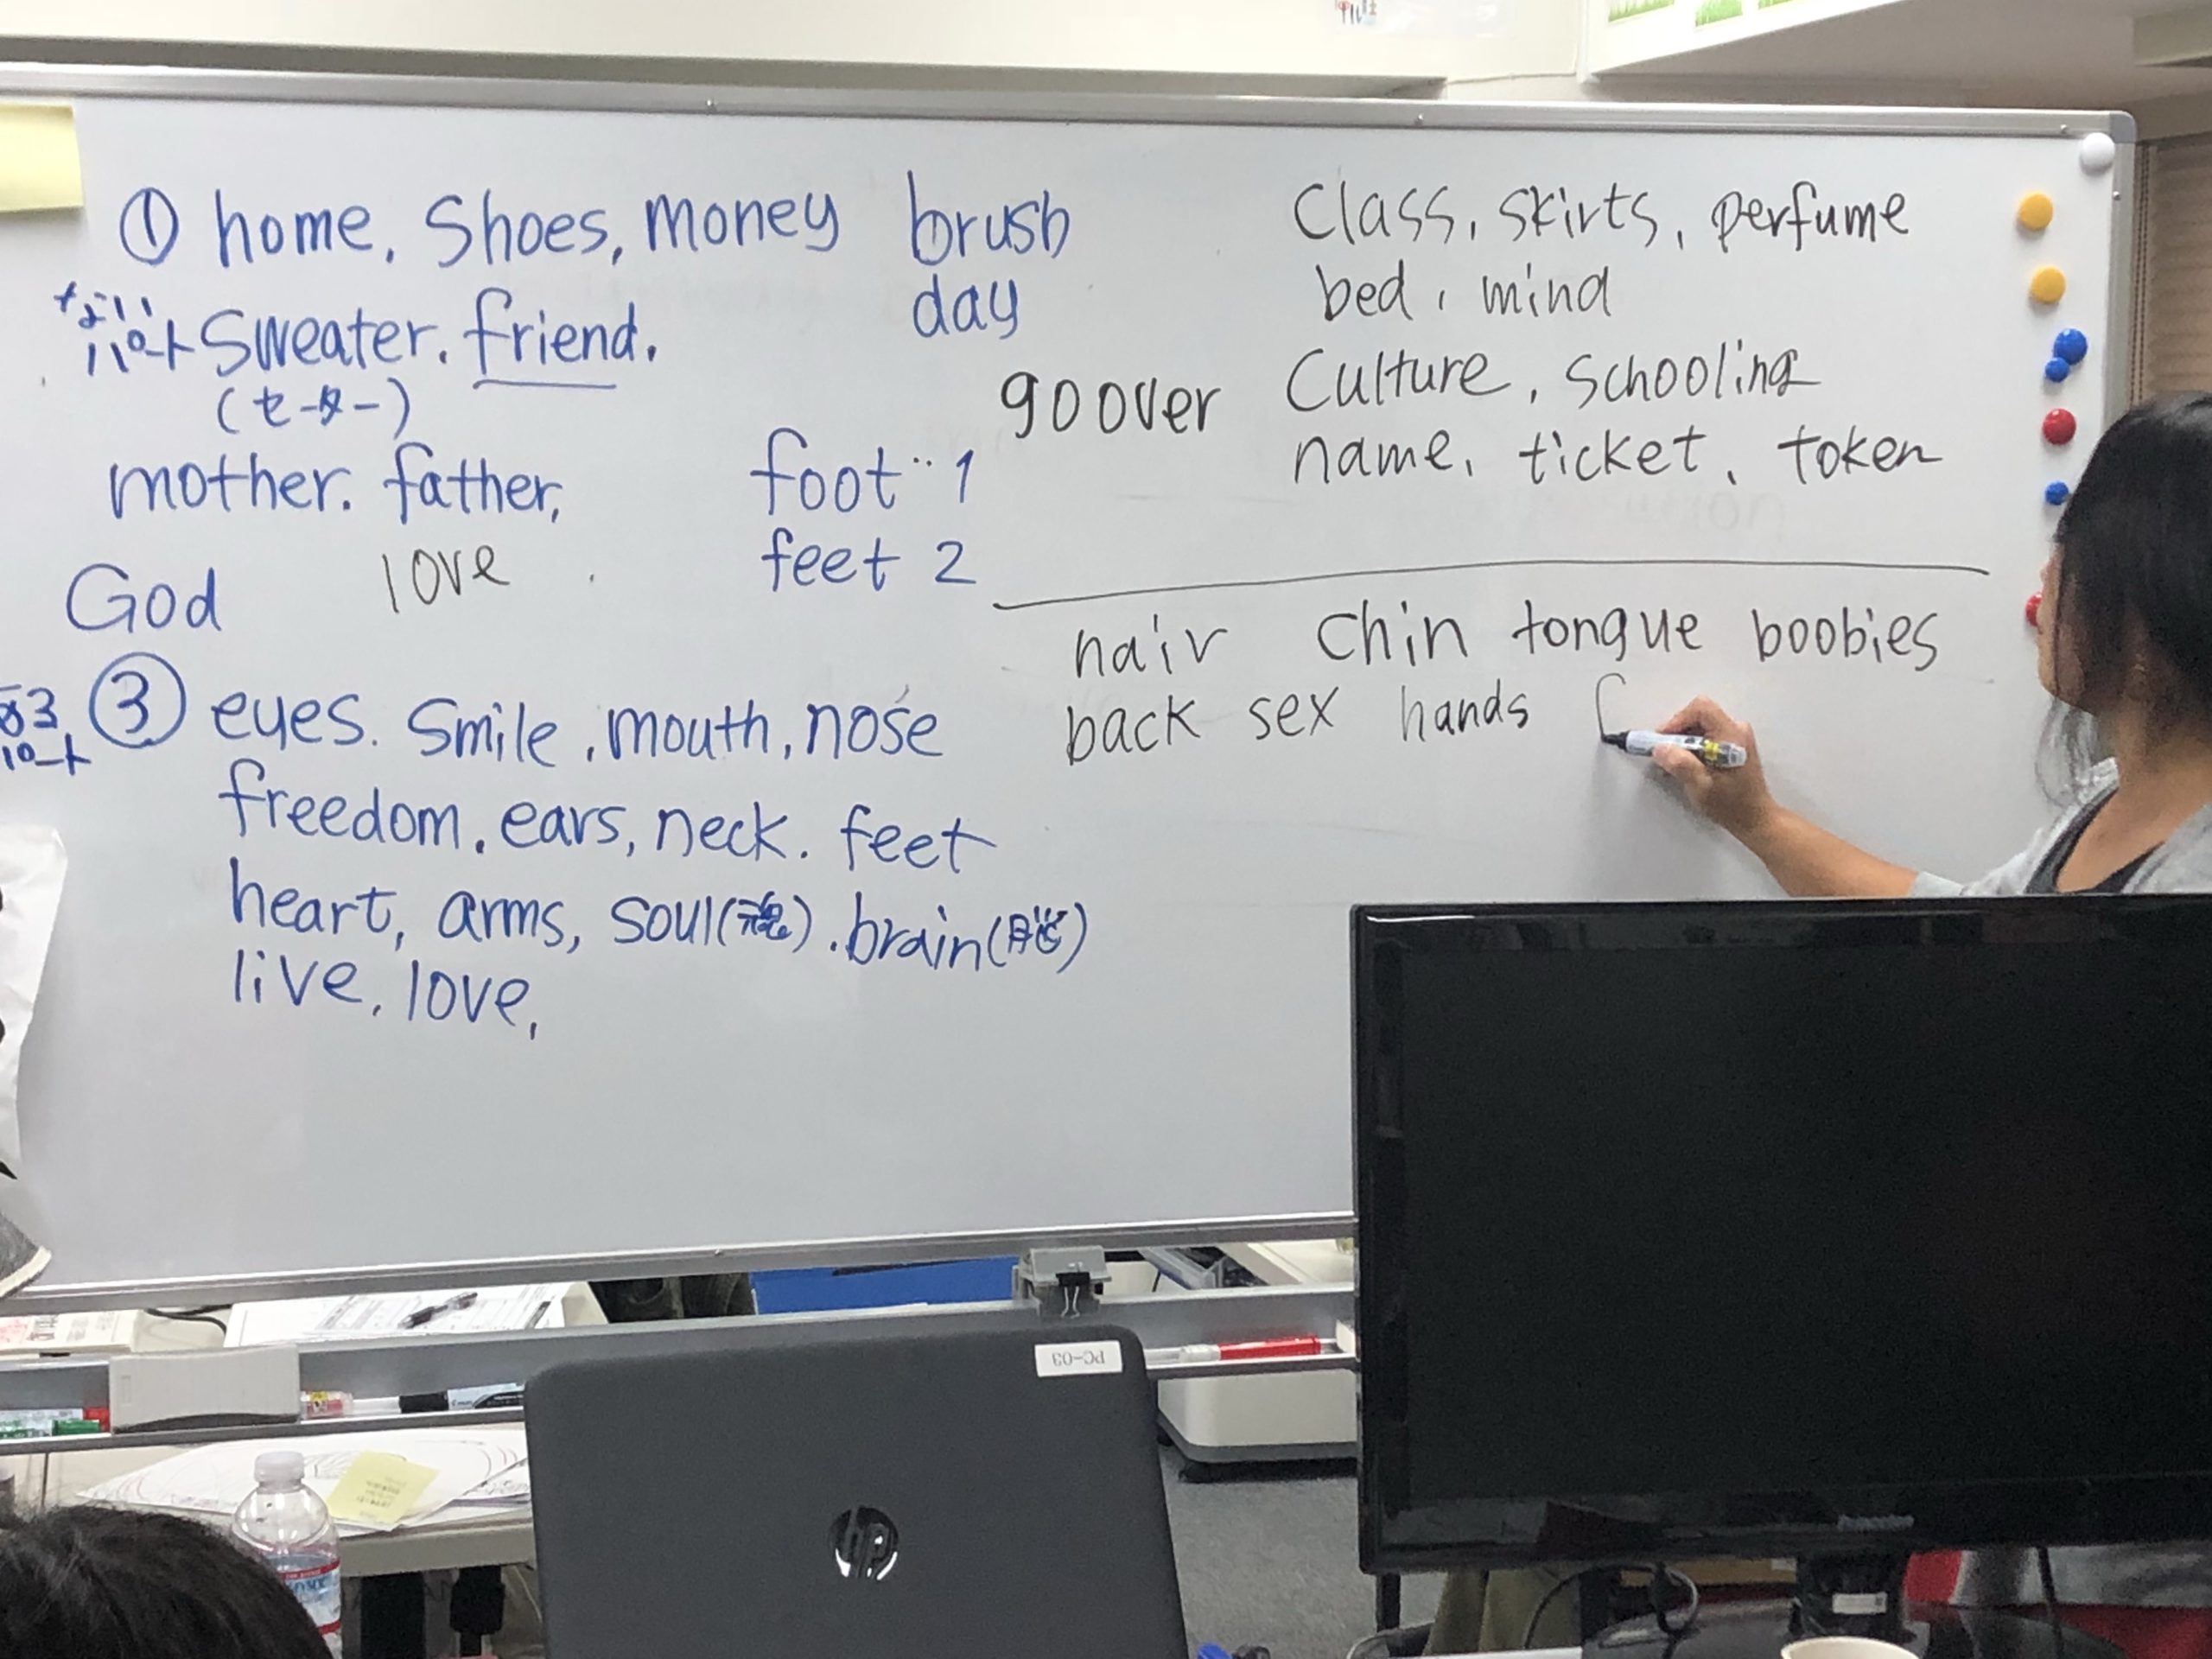 ① home, Shoes, money brush
day
ない
パート Sweater. friend.
(セーター)
mother. father,
God love
foot‥1
feet 2
Class, skirts, perfume
bed, mind
goover Culture, schooling
name, ticket, token
hair Chin tongue boobies
back sex hands
③ eyes. Smile, mouth, nose
パート
freedom. ears, neck. feet
heart, arms, soul(魂). brain(脳)
live, love,
PC-03
hp